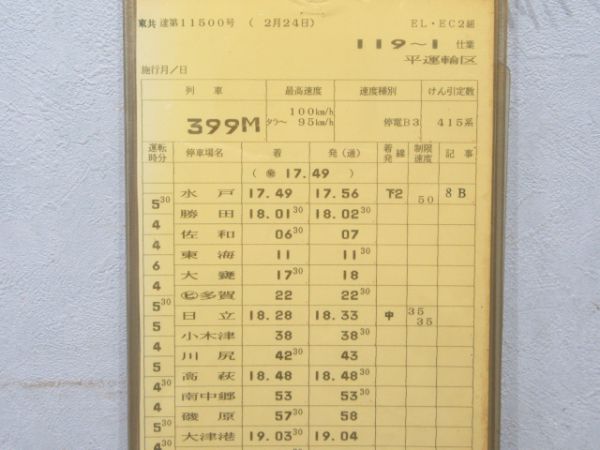 東共 達第11500号 ( 2月24日) EL・EC2組
119～1 仕業
平運輸区
施行月/日
列車 最高速度 速度種別 けん引定数
399M 100km/h タラ～ 95km/h 停電B3 415系
運転時分 停車場名 着 発(通) 着発線 制限速度 記事
( ㊝ 17.49 )
水戸 17.49 17.56 下2 50 8B
5 30
勝田 18.01 30 18.02 30
4
佐和 06 30 07
4
東海 11 11 30
6
大甕 17 30 18
4
㋪多賀 22 22 30
5 30
日立 18.28 18.33 中 35 35
5
小木津 38 38 30
4
川尻 42 30 43
5
高萩 18.48 18.48 30
4 30
南中郷 53 53 30
4
磯原 57 30 58
5 30
大津港 19.03 30 19.04
4 30